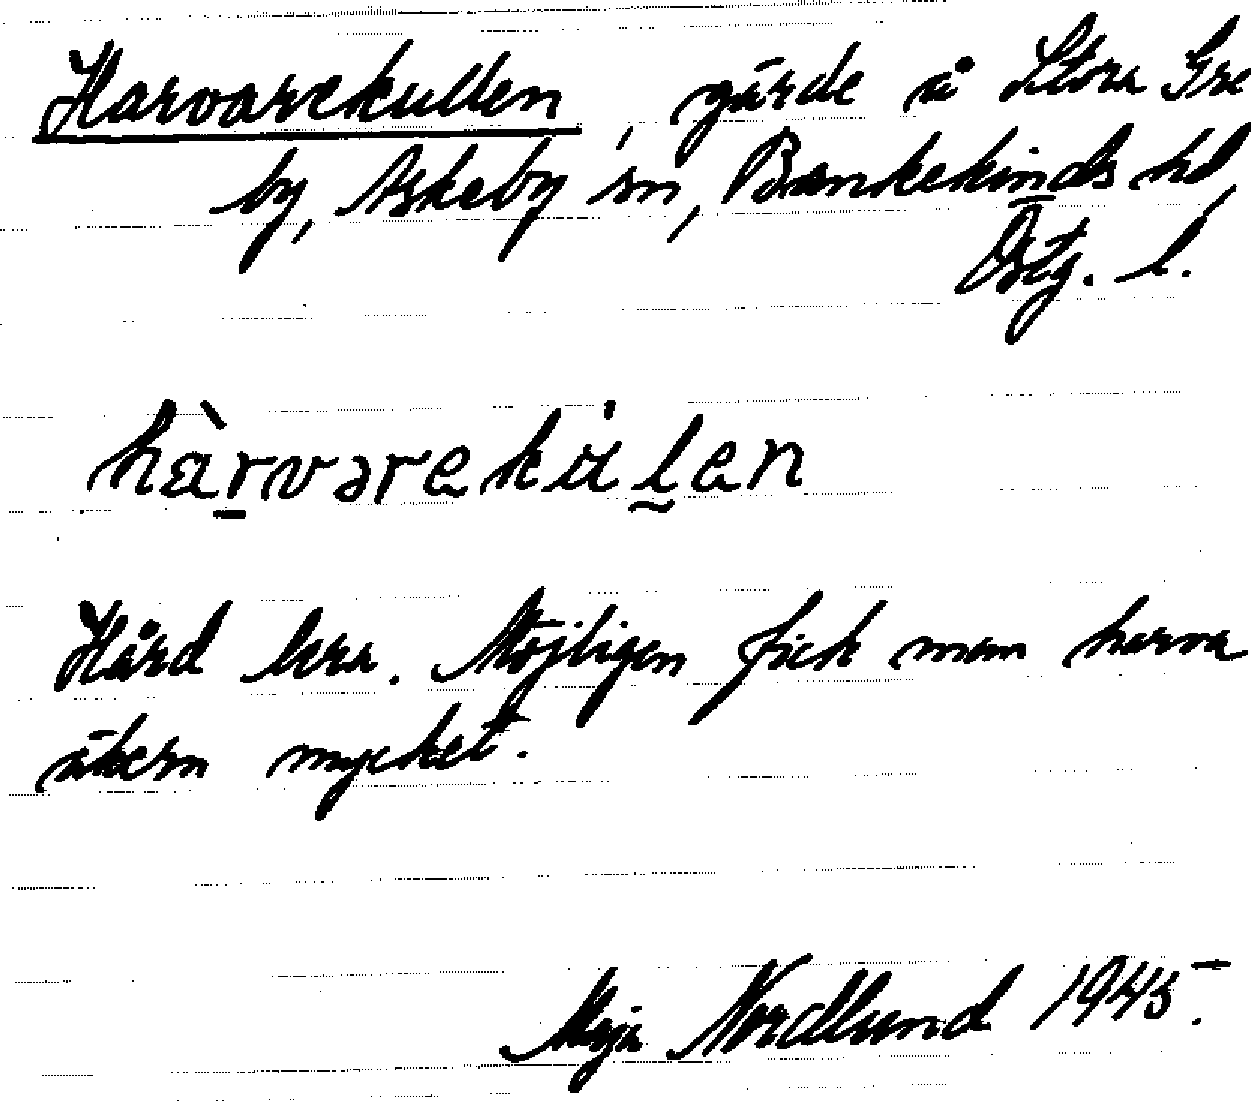 Harvarekullen, gärde å Stora Gre
by, Askeby sn, Bankekinds hd,
Östg. l.
hàrvarekulen
Hård lera. Möjligen fick man harva
åkern mycket.
Maja Nordlund 1945.